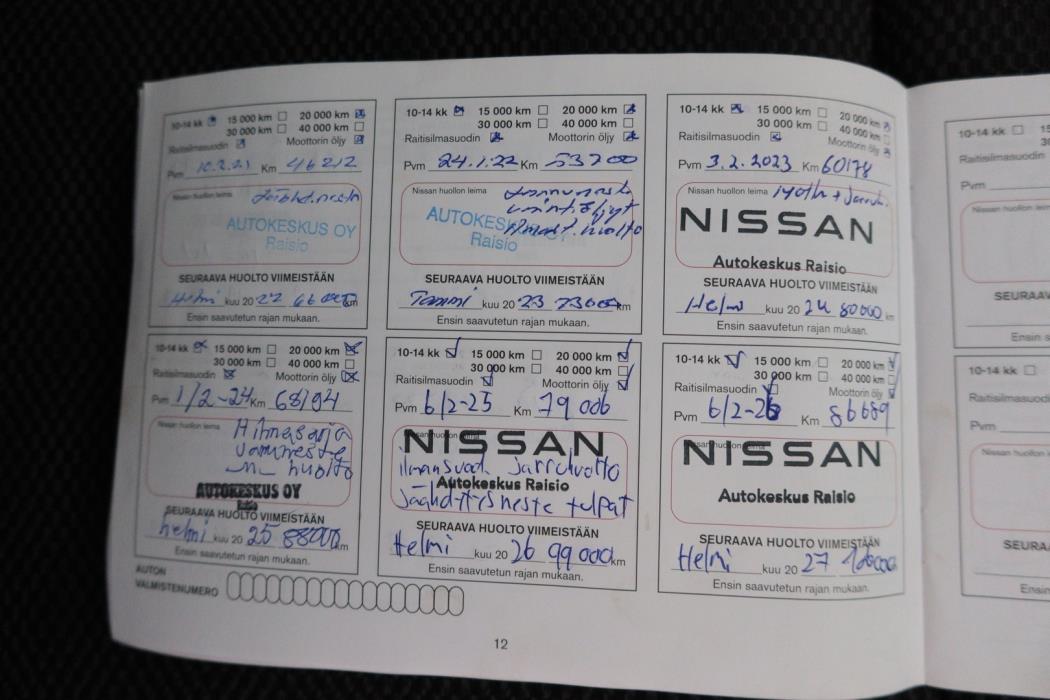 10-14 kk 15 000 km 20 000 km
30 000 km 40 000 km
Raitisilmasuodin Moottorin öljy
Pvm 10.2.21 Km 46212
Nissan huollon leima
AUTOKESKUS OY
Raisio
SEURAAVA HUOLTO VIIMEISTÄÄN
Helmi kuu 20 22 66000 km
Ensin saavutetun rajan mukaan.
10-14 kk 15 000 km 20 000 km
30 000 km 40 000 km
Raitisilmasuodin Moottorin öljy
Pvm 24.1.22 Km 53200
Nissan huollon leima
AUTOKESKUS OY
Raisio
SEURAAVA HUOLTO VIIMEISTÄÄN
Tammi kuu 20 23 73000 km
Ensin saavutetun rajan mukaan.
10-14 kk 15 000 km 20 000 km
30 000 km 40 000 km
Raitisilmasuodin Moottorin öljy
Pvm 3.2.2023 Km 60178
Nissan huollon leima
NISSAN
Autokeskus Raisio
SEURAAVA HUOLTO VIIMEISTÄÄN
Helmi kuu 20 24 80000 km
Ensin saavutetun rajan mukaan.
10-14 kk 15 000 km 20 000 km
30 000 km 40 000 km
Raitisilmasuodin Moottorin öljy
Pvm 1/2-24 Km 68194
Nissan huollon leima
huolto
AUTOKESKUS OY
SEURAAVA HUOLTO VIIMEISTÄÄN
helmi kuu 20 25 88000 km
Ensin saavutetun rajan mukaan.
10-14 kk 15 000 km 20 000 km
30 000 km 40 000 km
Raitisilmasuodin Moottorin öljy
Pvm 6/2-25 Km 79 006
Nissan huollon leima
NISSAN
ilmansuod. Jarruhuolto
Autokeskus Raisio
Jäähdytysneste tulpat
SEURAAVA HUOLTO VIIMEISTÄÄN
Helmi kuu 20 26 99 000 km
Ensin saavutetun rajan mukaan.
10-14 kk 15 000 km 20 000 km
30 000 km 40 000 km
Raitisilmasuodin Moottorin öljy
Pvm 6/2-26 Km 86689
Nissan huollon leima
NISSAN
Autokeskus Raisio
SEURAAVA HUOLTO VIIMEISTÄÄN
Helmi kuu 20 27 km
Ensin saavutetun rajan mukaan.
AUTON
VALMISTENUMERO
12
10-14 kk
Raitisilmasuodin
Pvm
Nissan huollon leima
SEURAAV
Ensin s
10-14 kk
Raitisilmasuodi
Pvm
Nissan huollon leima
SEURA
Ensin